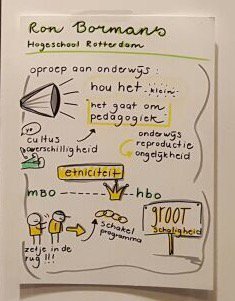 Ron Bormans
Hogeschool Rotterdam
oproep aan onderwijs:
hou het klein
het gaat om
pedagogiek
cultus
overschilligheid
onderwijs
reproductie
ongelijkheid
etniciteit
MBO
hbo
schakel
programma
GROOT
Schaligheid
zetje in de
rug!!!